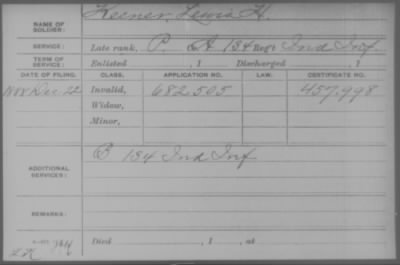 NAME OF SOLDIER: Keener, Lewis H.
SERVICE: Late rank, P. A 134 Reg't Ind Inf.
TERM OF SERVICE: Enlisted , 1 Discharged , 1
DATE OF FILING. CLASS. APPLICATION NO. LAW. CERTIFICATE NO.
1888 Dec. 22 Invalid, 682.505 457.998
Widow,
Minor,
ADDITIONAL SERVICES: B 134 Ind Inf
REMARKS:
Died , 1 , at